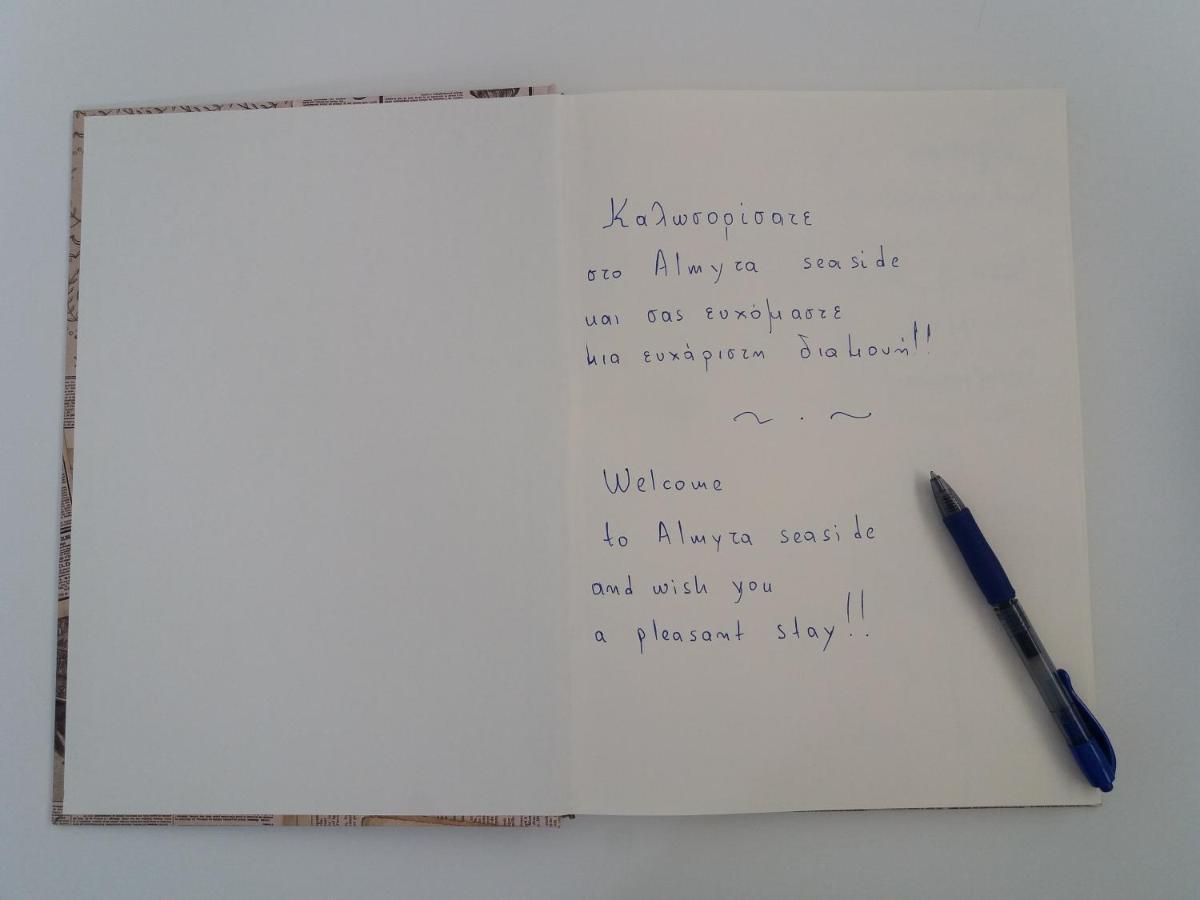 Καλωσορίσατε
στο Almyra seaside
και σας ευχόμαστε
μια ευχάριστη διαμονή!!
~ . ~
Welcome
to Almyra seaside
and wish you
a pleasant stay!!